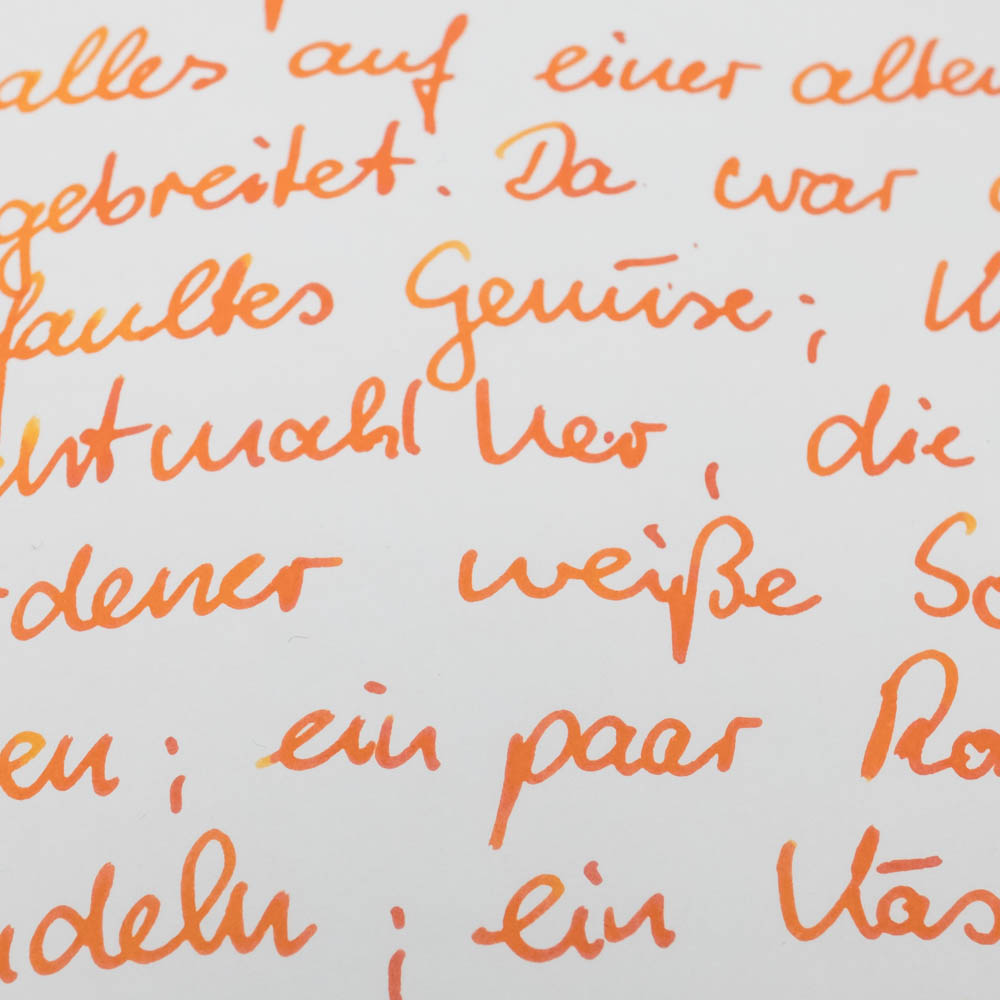 alles auf einer alten
gebreitet. Da war
faultes Gemüse; K
chtmahl her, die
dener weiße So
en; ein paar Ro
ndeln; ein Käs